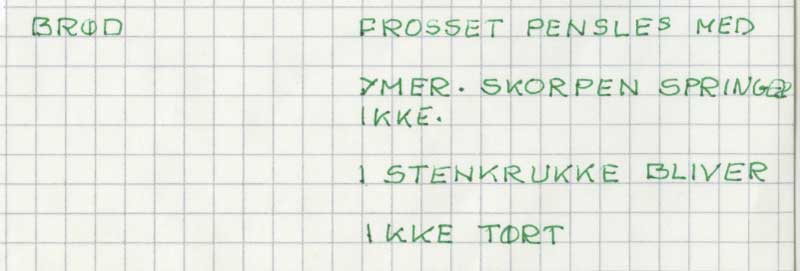 BRØD FROSSET PENSLES MED
YMER. SKORPEN SPRINGER
IKKE.
I STENKRUKKE BLIVER
IKKE TØRT